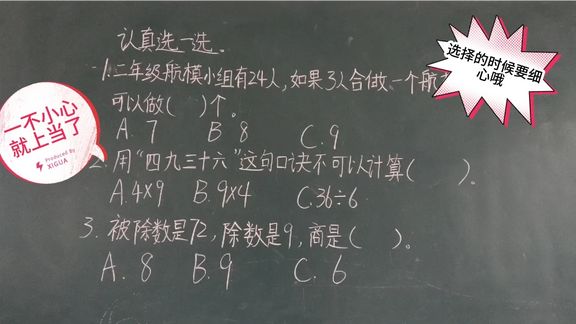 认真选一选。
1.二年级航模小组有24人,如果3人合做一个航
可以做( )个。
A. 7 B. 8 C. 9
2.用“四九三十六”这句口诀不可以计算( )。
A.4×9 B.9×4 C.36÷6
3.被除数是72,除数是9,商是( )。
A. 8 B. 9 C. 6
选择的时候要细
心哦
一不小心
就上当了
Produced By
XIGUA